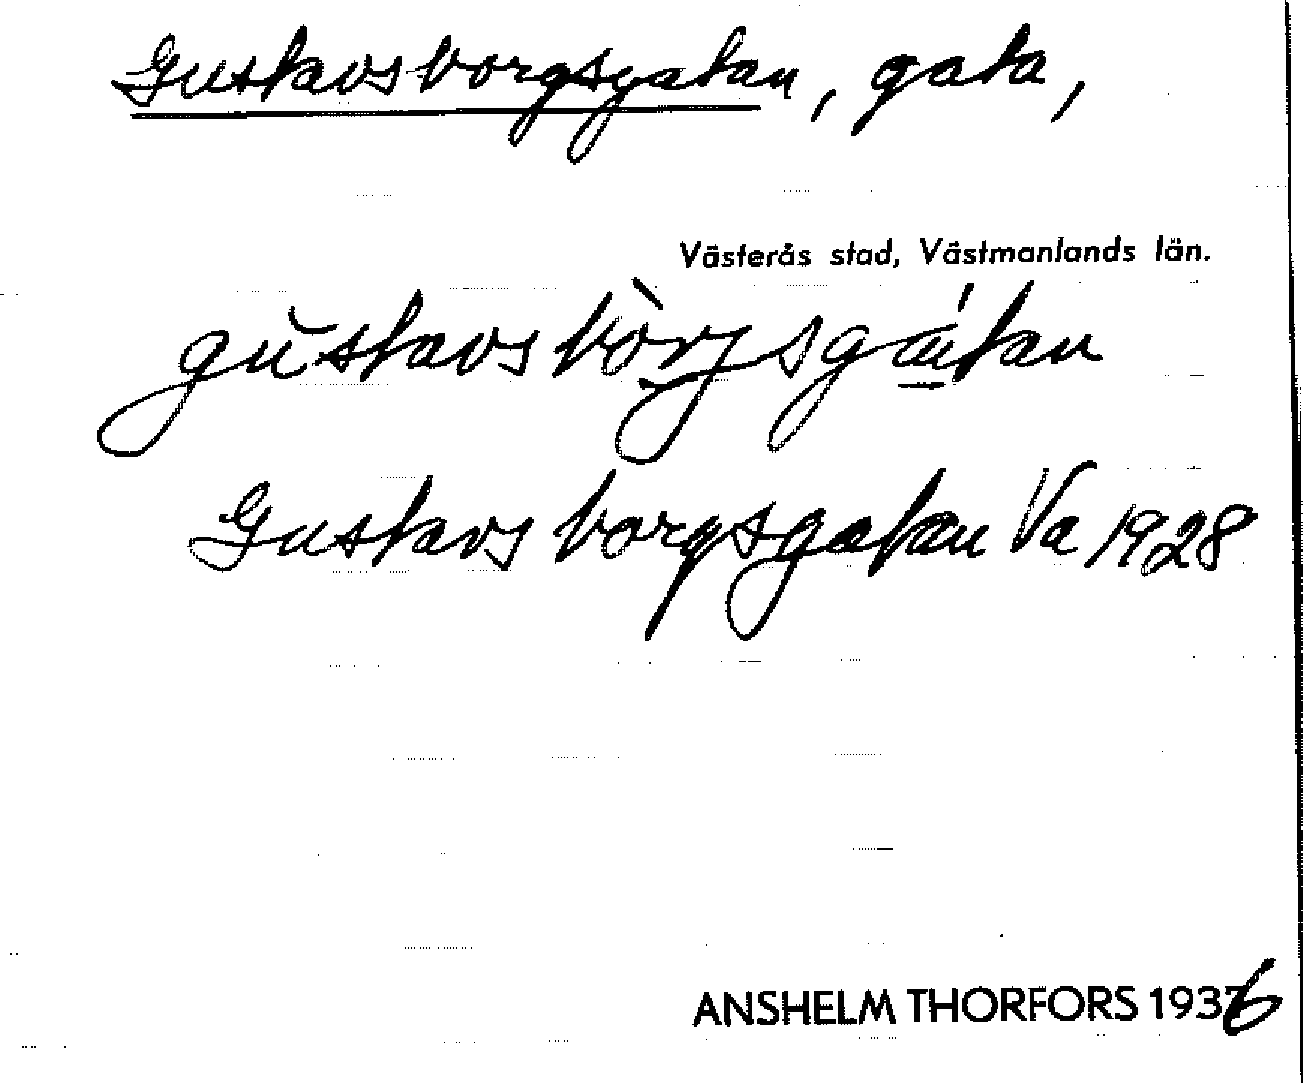 Gustavsborgsgatan, gata,
Västerås stad, Västmanlands län.
gùstavsbòrjsgátan
Gustavsborgsgatan Va 1928
ANSHELM THORFORS 1936